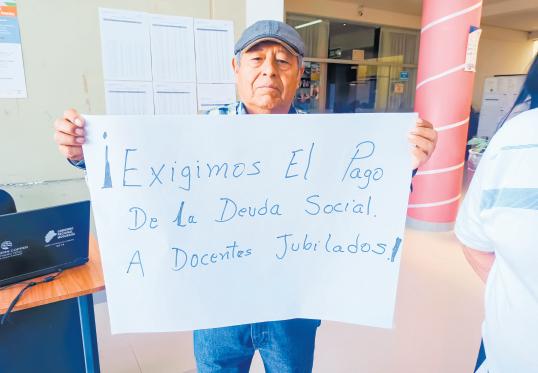 ¡Exigimos El Pago
De la Deuda Social.
A Docentes Jubilados.!